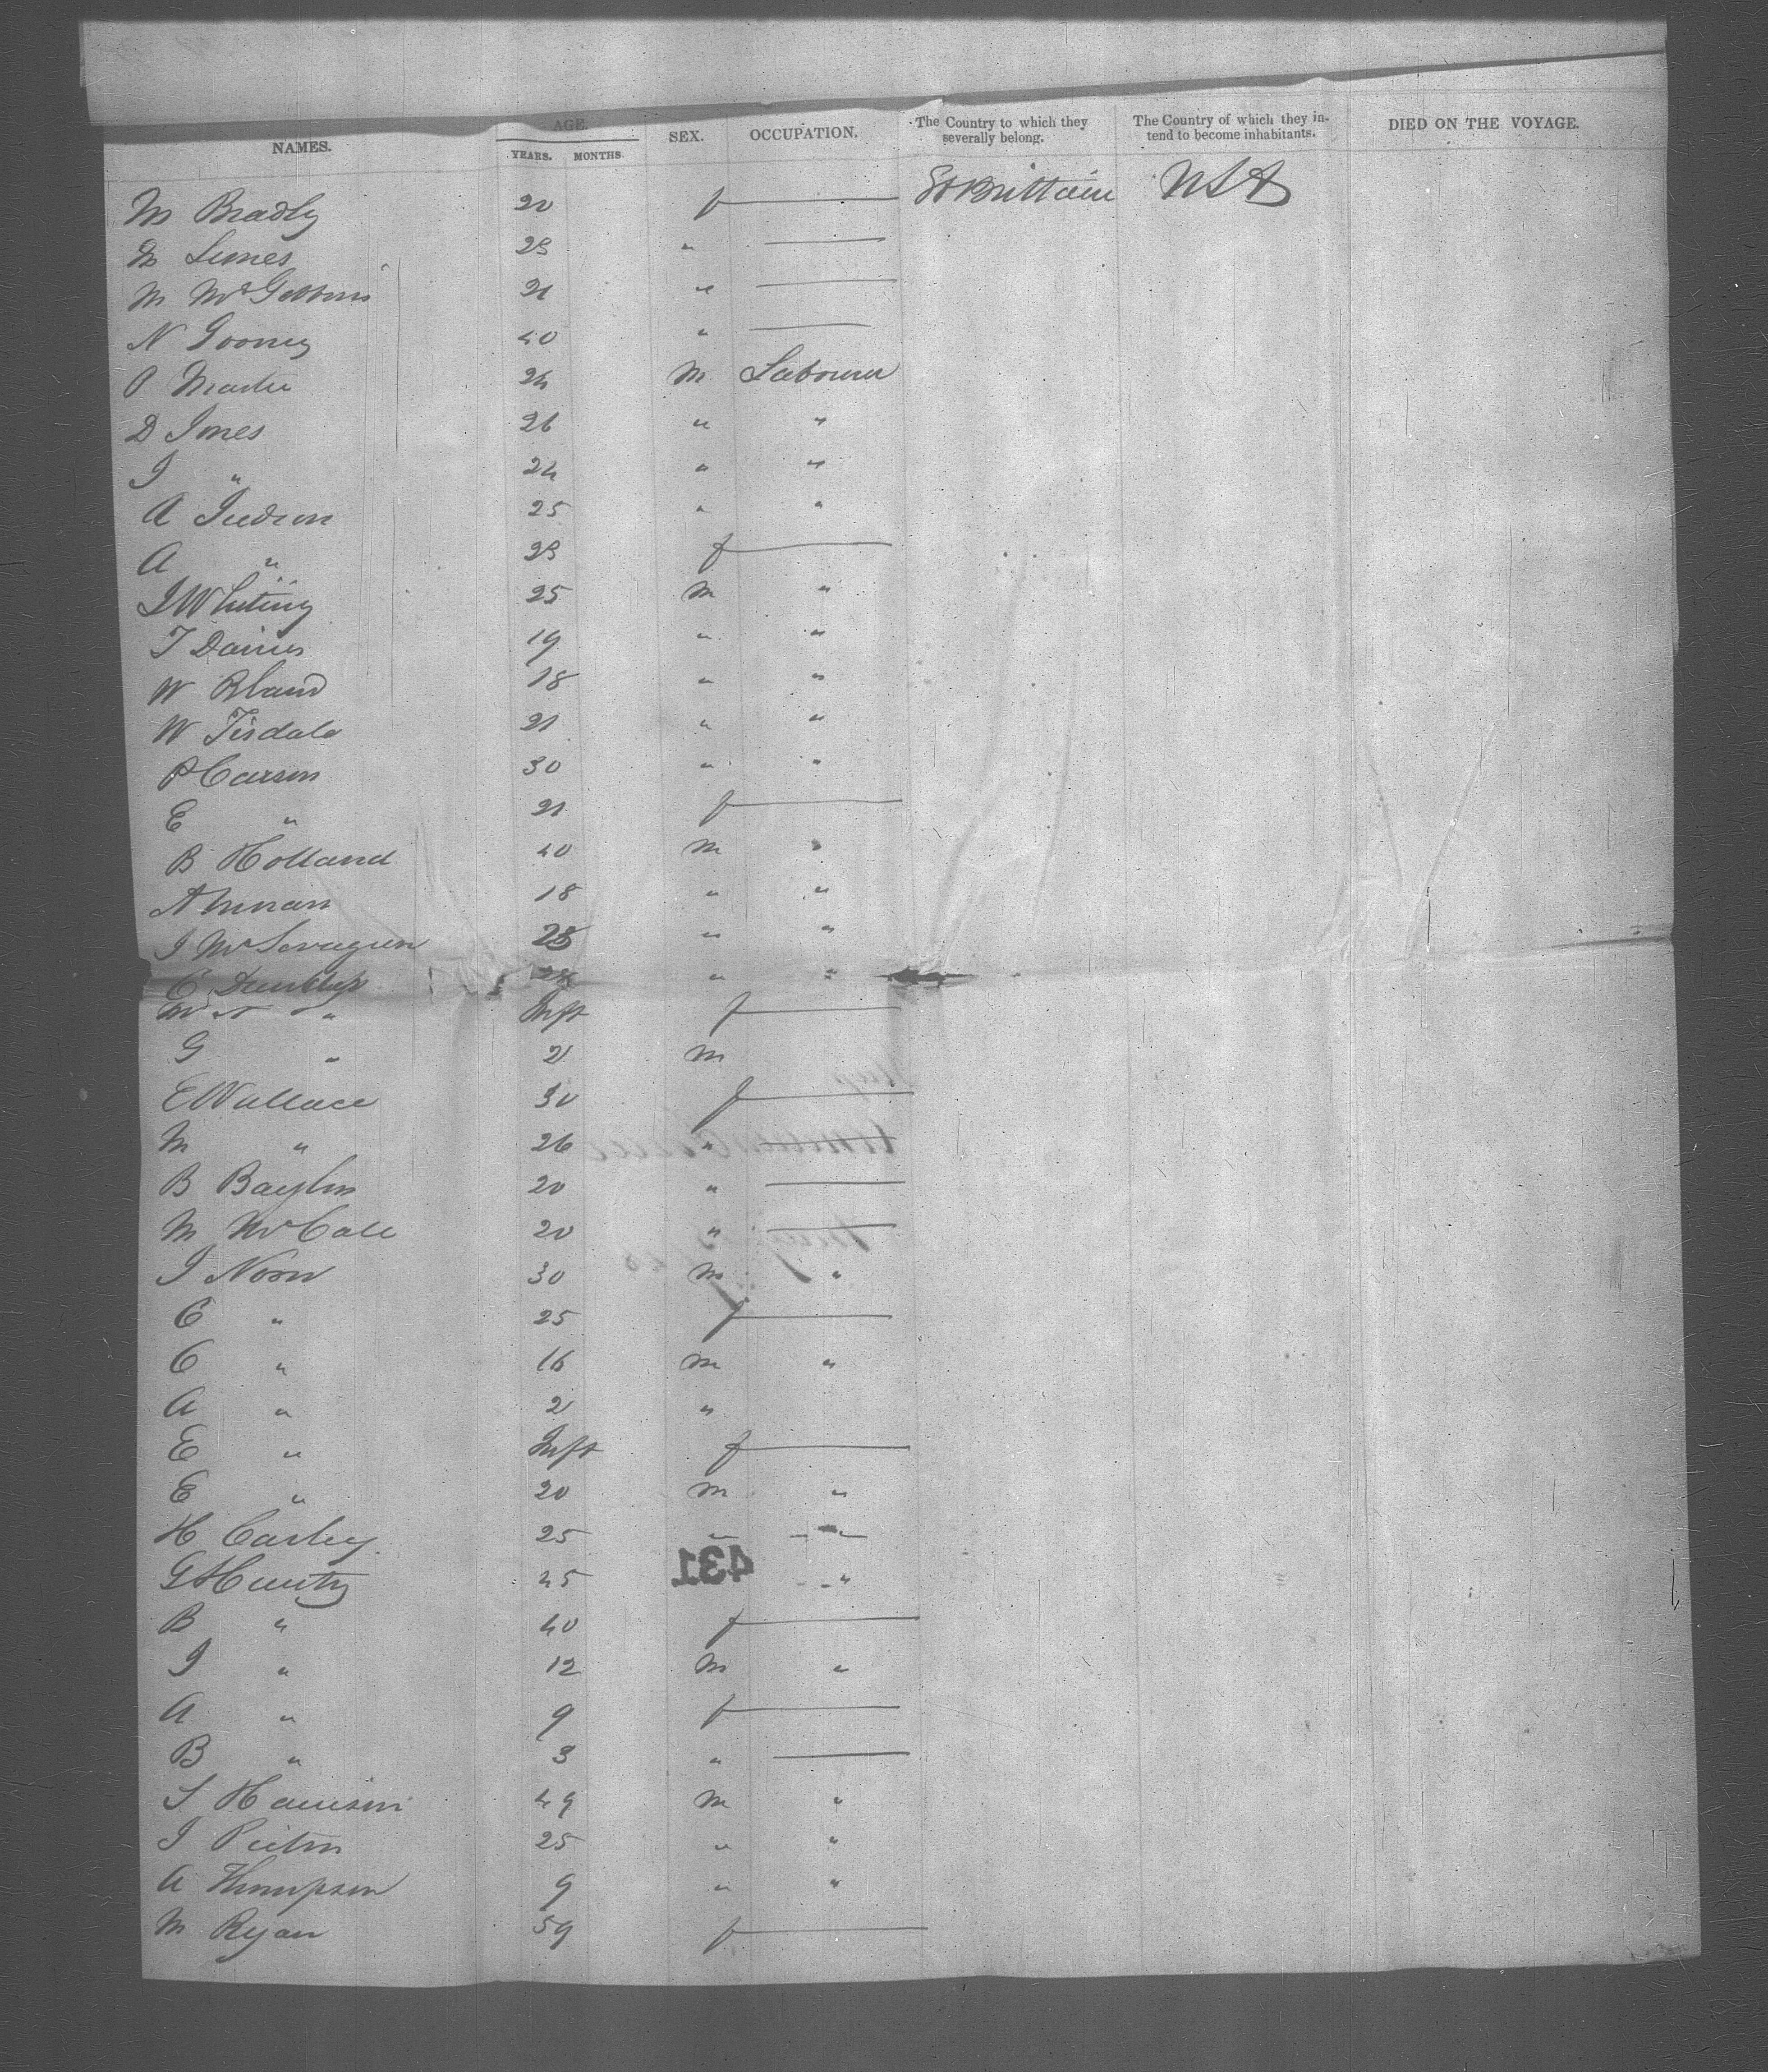 NAMES. AGE. YEARS. MONTHS. SEX. OCCUPATION. The Country to which they severally belong. The Country of which they intend to become inhabitants. DIED ON THE VOYAGE.
M Bradly 20 f Gt Brittain USA
23 "
M 21 "
N Gooney 40 "
P Martin 24 M Labourer
D Jones 26 " "
J " 24 " "
A Judson 25 " "
A " 23 f
J Whiting 25 M "
T Davies 19 " "
W Bland 18 " "
W Tisdale 21 " "
P Carson 30 " "
E " 21 f
B Holland 40 M "
18 " "
J " "
C Dunlop " "
" Inft f
G " 2 M
E Wallace 30 f
M " 26 "
B 20 "
M McCall 20 "
J 30 M "
C " 25 f
C " 16 M "
A " 2 "
E " Inft f
E " 20 M "
H Carley 25 " "
G 45 "
431
B " 40 f
J " 12 M "
A " 9 f
B " 3 "
S Harrison 49 M "
J 25 " "
A Thompson 9 " "
M Ryan 59 f